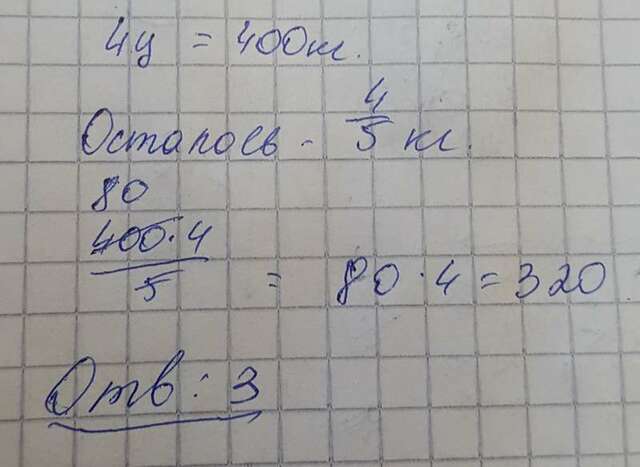 4ц = 400кг.
Осталось - 4/5 кг.
80
400·4/5 = 80·4=320
Отв: 3